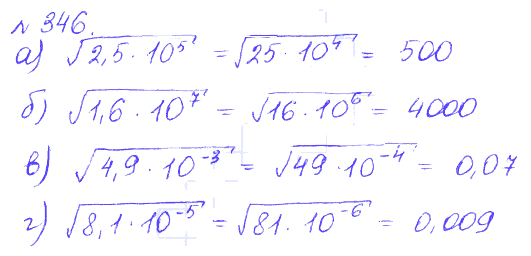 № 346.
а) √(2,5 · 10⁵) = √(25 · 10⁴) = 500
б) √(1,6 · 10⁷) = √(16 · 10⁶) = 4000
в) √(4,9 · 10⁻³) = √(49 · 10⁻⁴) = 0,07
г) √(8,1 · 10⁻⁵) = √(81 · 10⁻⁶) = 0,009